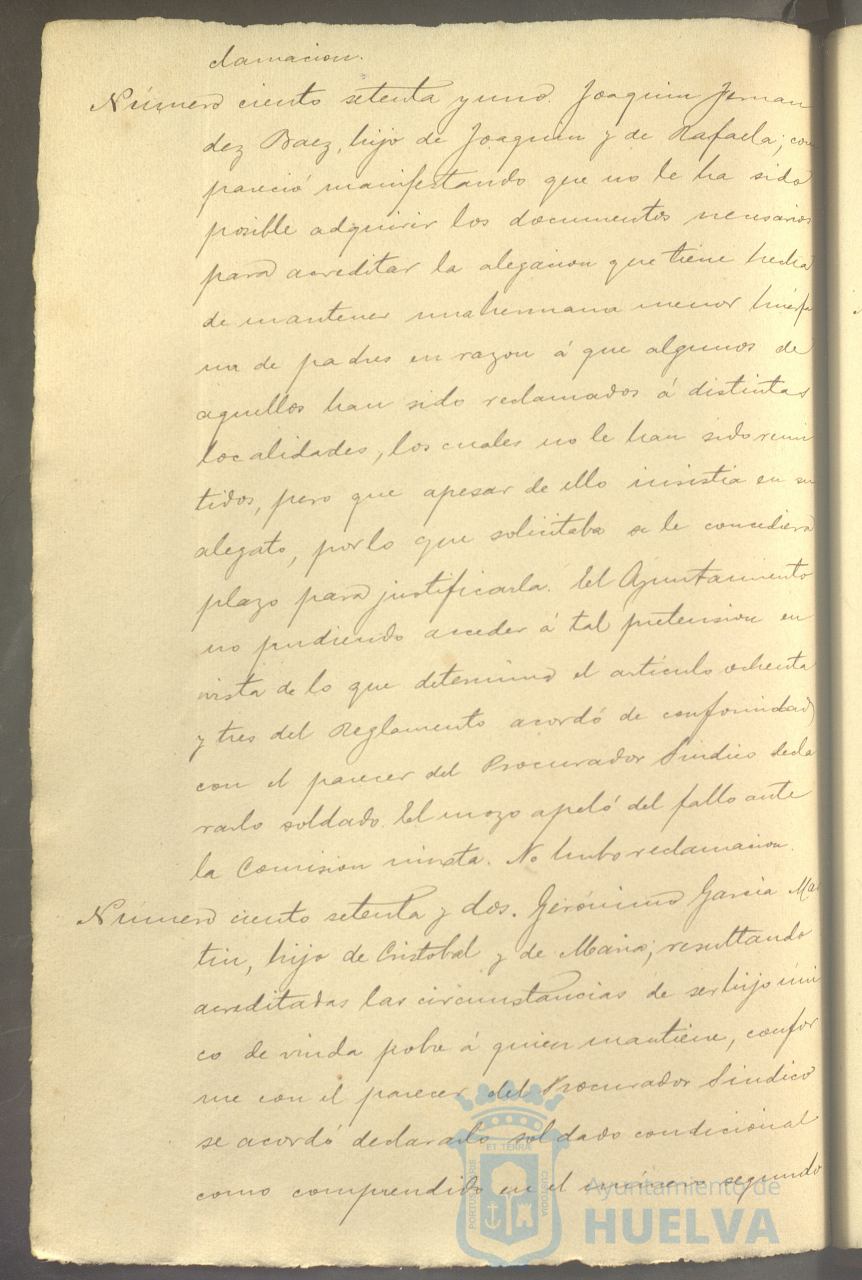 clamacion.
Número ciento setenta y uno. Joaquin Fernan
dez Baez, hijo de Joaquin y de Rafaela; com
pareció manifestando que no le ha sido
posible adquirir los documentos necesarios
para acreditar la alegacion que tiene hecha
de mantener una hermana menor huérfa
na de padres en razon á que algunos de
aquellos han sido reclamados á distintas
localidades, los cuales no le han sido remi
tidos, pero que apesar de ello insistia en su
alegato, por lo que solicitaba se le concediera
plazo para justificarla. El Ayuntamiento
no pudiendo acceder á tal pretension en
vista de lo que determina el articulo ochenta
y tres del Reglamento acordó de conformidad
con el parecer del Procurador Sindico decla
rarlo soldado. El mozo apeló del fallo ante
la Comision mixta. No hubo reclamacion.
Número ciento setenta y dos. Gerónimo Garcia Mar
tin, hijo de Cristobal y de Maria; resultando
acreditadas las circunstancias de ser hijo úni
co de viuda pobre á quien mantiene, confor
me con el parecer del Procurador Sindico
se acordó declararlo soldado condicional
como comprendido en el número segundo
PORTUS MARIS ET TERRÆ CUSTODIA
Ayuntamiento de
HUELVA